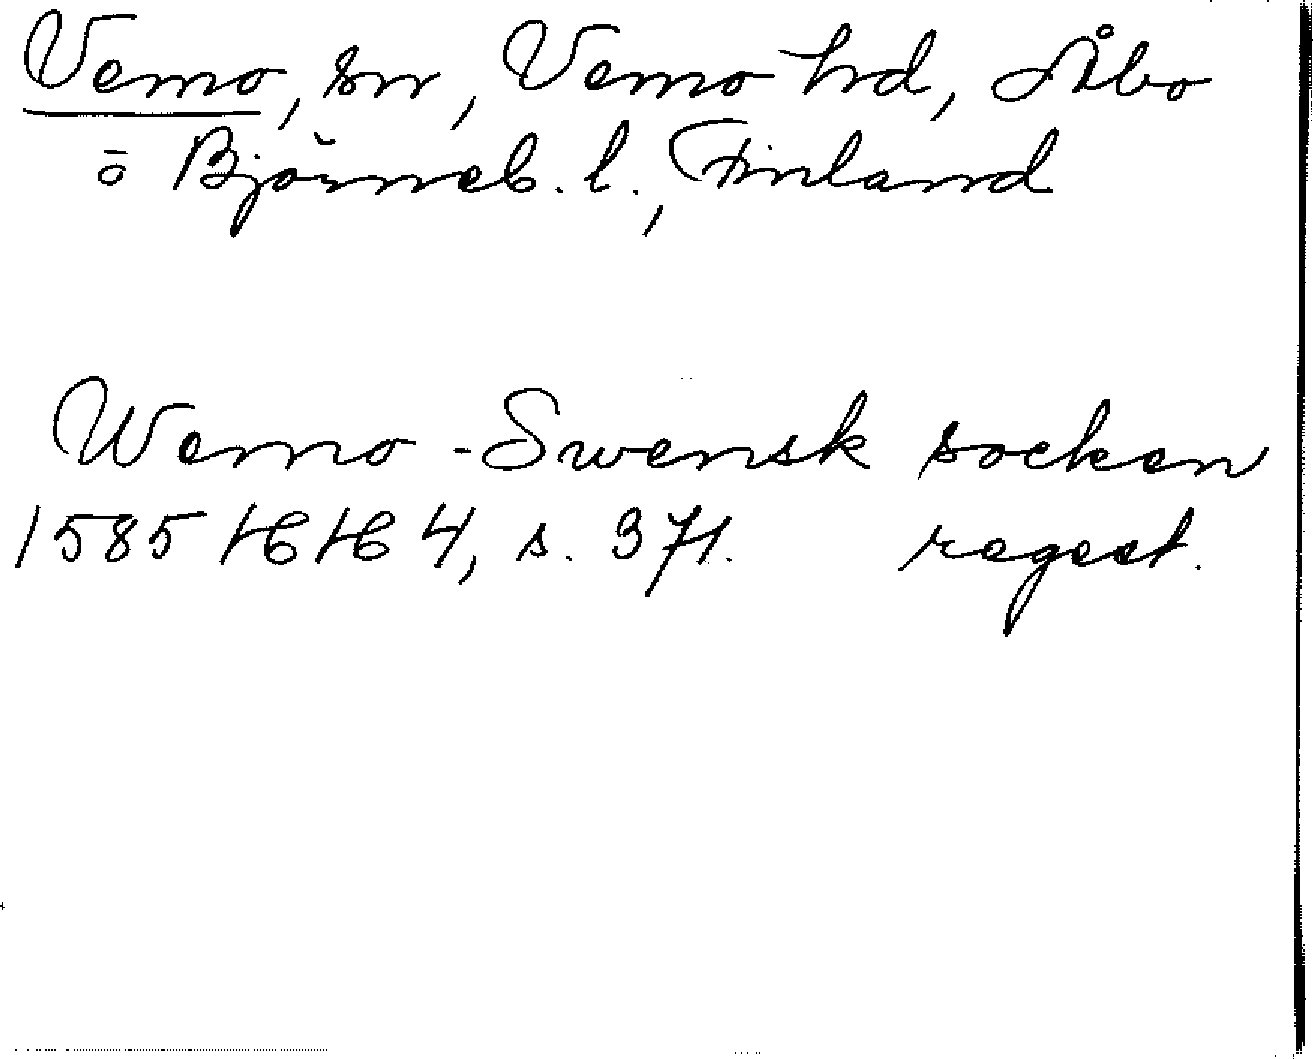 Vemo, sn, Vemo hd, Åbo
o Björneb. l., Finland
Wemo-Swensk socken
1585 HH 4, s. 371. regest.